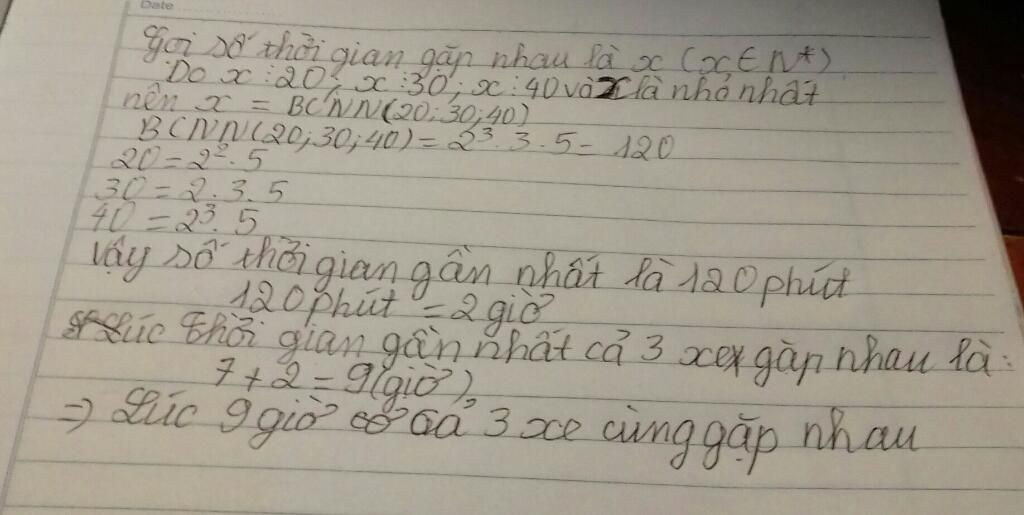 Date
Gọi số thời gian gặp nhau là x (x ∈ N*)
Do x ⋮ 20; x ⋮ 30; x ⋮ 40 và x là nhỏ nhất
nên x = BCNN(20; 30; 40)
BCNN(20; 30; 40) = 2³. 3 . 5 = 120
20 = 2². 5
30 = 2. 3. 5
40 = 2³. 5
Vậy số thời gian gần nhất là 120 phút
120 phút = 2 giờ
Lúc thời gian gần nhất cả 3 xe gặp nhau là:
7 + 2 = 9 (giờ)
=> Lúc 9 giờ cả 3 xe cùng gặp nhau